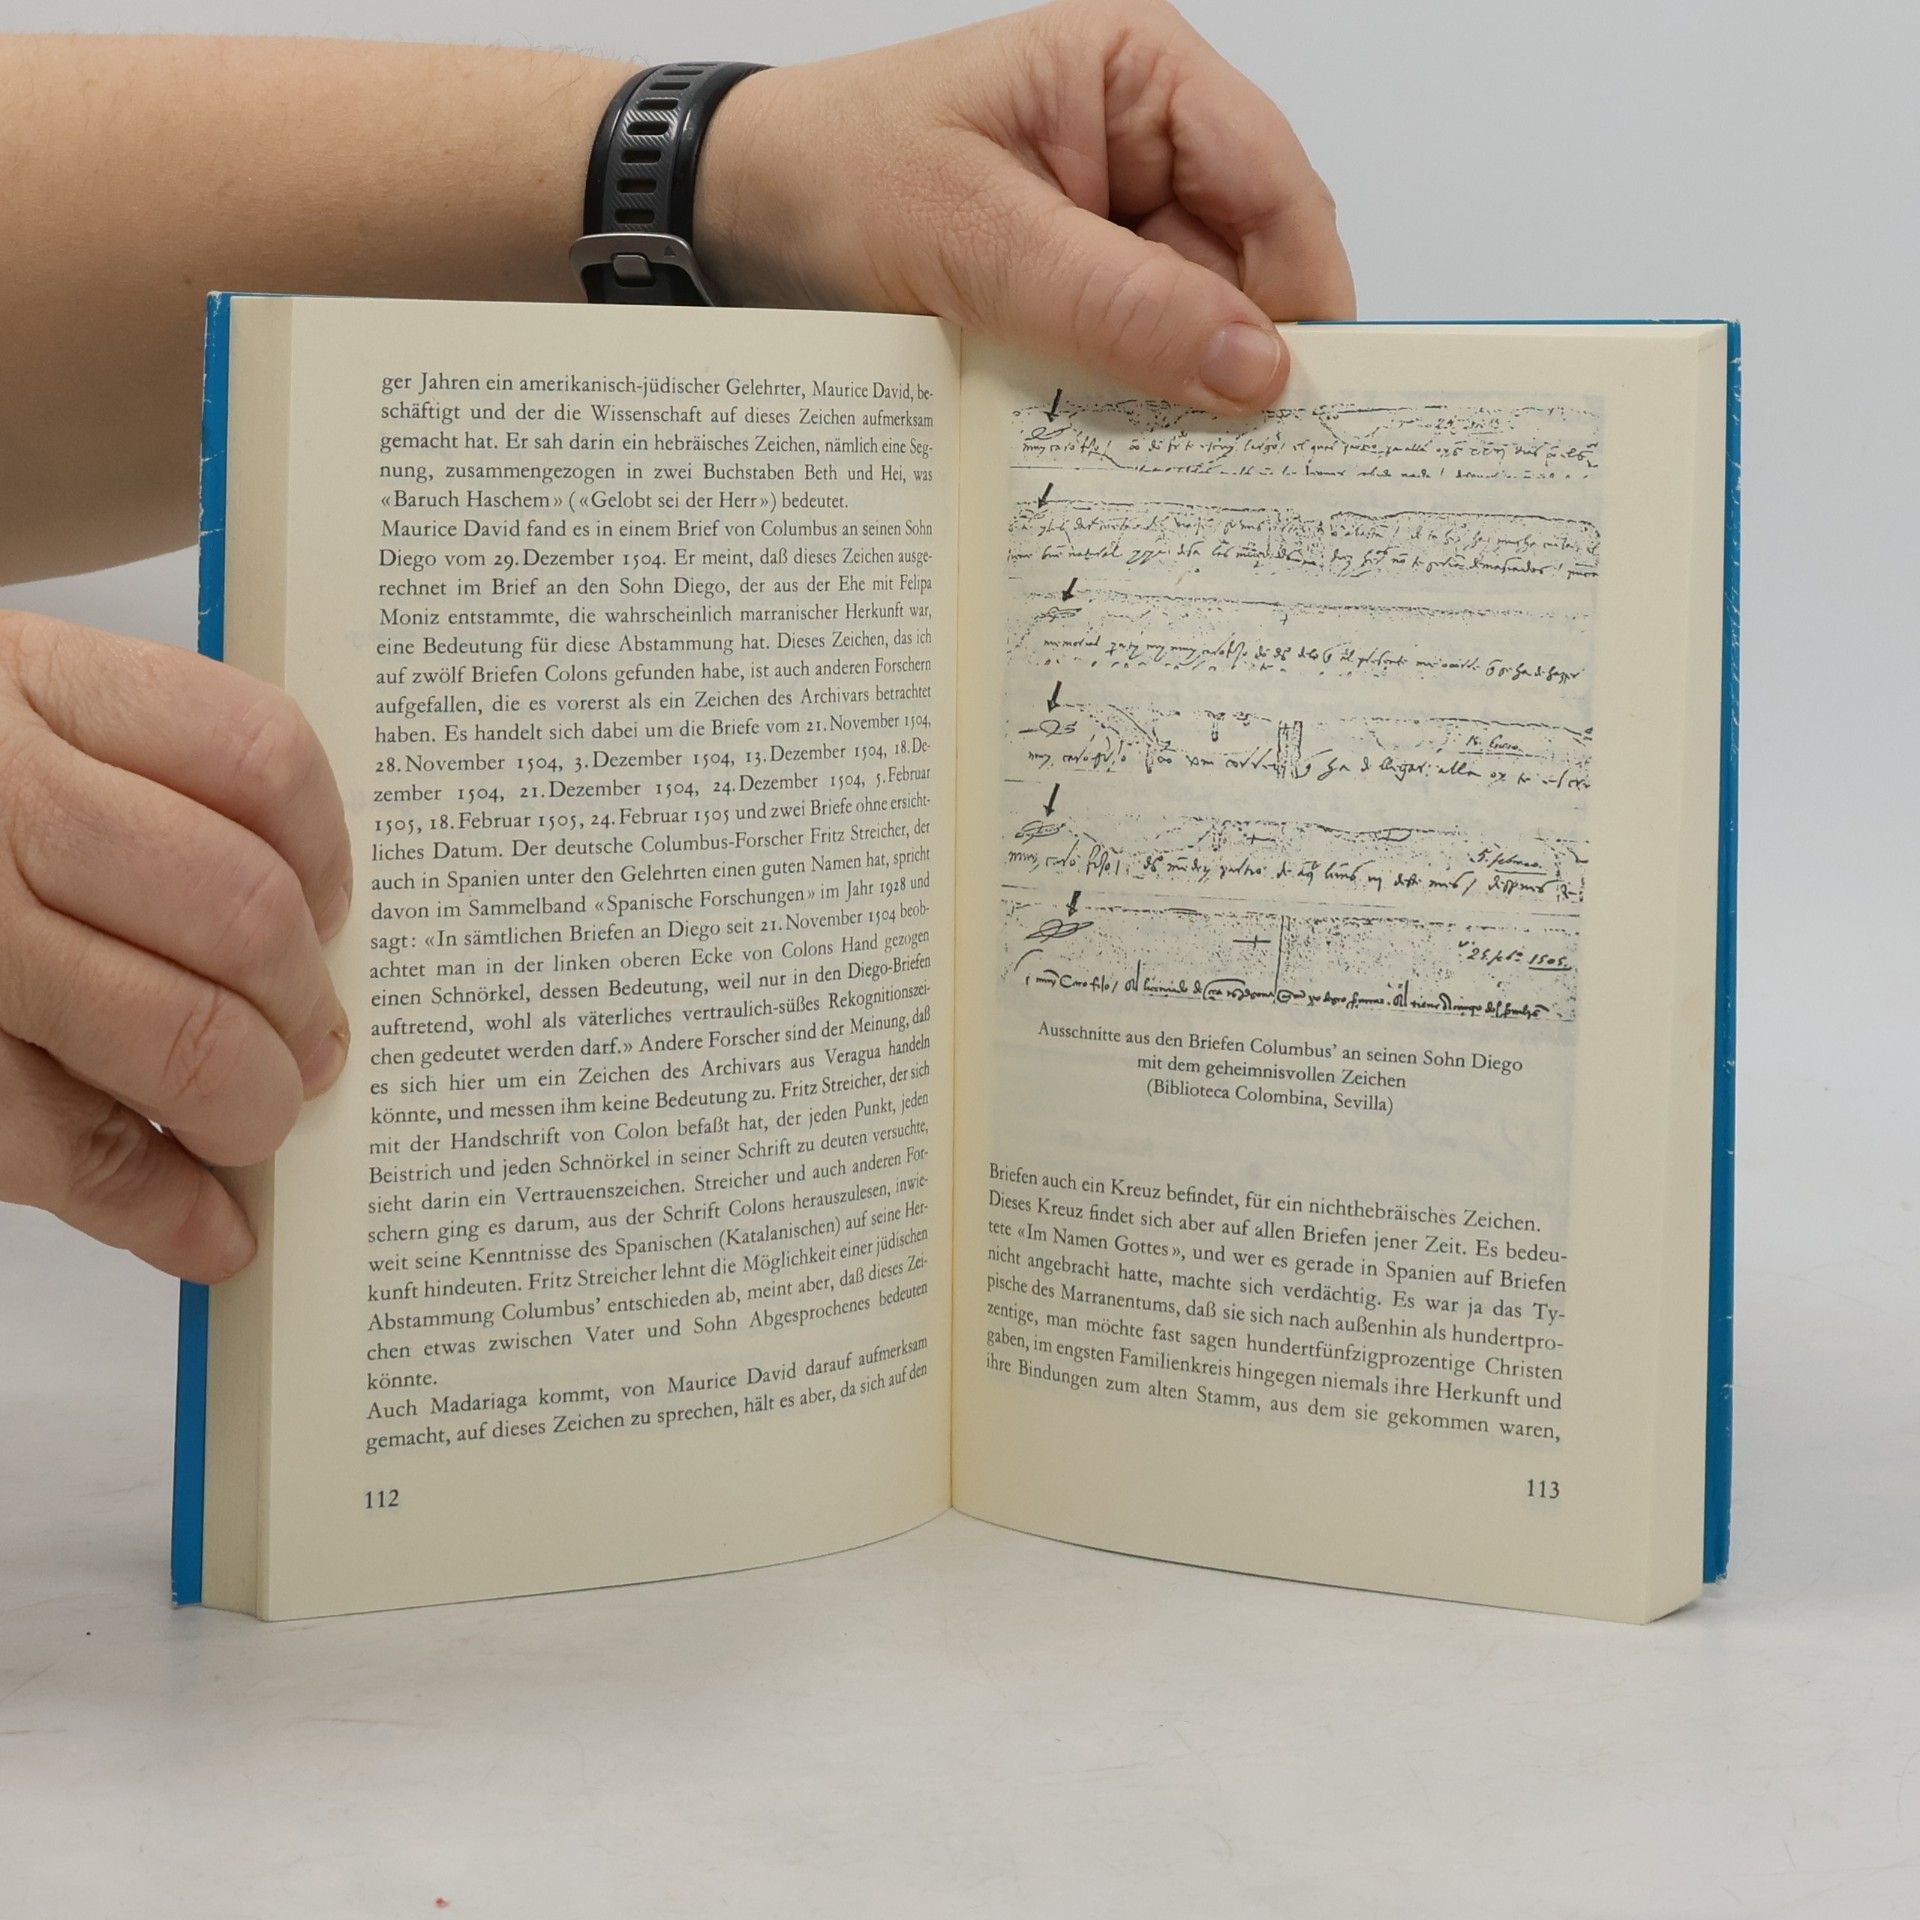 ger Jahren ein amerikanisch-jüdischer Gelehrter, Maurice David, be-
schäftigt und der die Wissenschaft auf dieses Zeichen aufmerksam
gemacht hat. Er sah darin ein hebräisches Zeichen, nämlich eine Seg-
nung, zusammengezogen in zwei Buchstaben Beth und Hei, was
«Baruch Haschem» («Gelobt sei der Herr») bedeutet.
Maurice David fand es in einem Brief von Columbus an seinen Sohn
Diego vom 29. Dezember 1504. Er meint, daß dieses Zeichen ausge-
rechnet im Brief an den Sohn Diego, der aus der Ehe mit Felipa
Moniz entstammte, die wahrscheinlich marranischer Herkunft war,
eine Bedeutung für diese Abstammung hat. Dieses Zeichen, das ich
auf zwölf Briefen Colons gefunden habe, ist auch anderen Forschern
aufgefallen, die es vorerst als ein Zeichen des Archivars betrachtet
haben. Es handelt sich dabei um die Briefe vom 21. November 1504,
28. November 1504, 3. Dezember 1504, 13. Dezember 1504, 18. De-
zember 1504, 21. Dezember 1504, 24. Dezember 1504, 5. Februar
1505, 18. Februar 1505, 24. Februar 1505 und zwei Briefe ohne ersicht-
liches Datum. Der deutsche Columbus-Forscher Fritz Streicher, der
auch in Spanien unter den Gelehrten einen guten Namen hat, spricht
davon im Sammelband «Spanische Forschungen» im Jahr 1928 und
sagt: «In sämtlichen Briefen an Diego seit 21. November 1504 beob-
achtet man in der linken oberen Ecke von Colons Hand gezogen
einen Schnörkel, dessen Bedeutung, weil nur in den Diego-Briefen
auftretend, wohl als väterliches vertraulich-süßes Rekognitionszei-
chen gedeutet werden darf.» Andere Forscher sind der Meinung, daß
es sich hier um ein Zeichen des Archivars aus Veragua handeln
könnte, und messen ihm keine Bedeutung zu. Fritz Streicher, der sich
mit der Handschrift von Colon befaßt hat, der jeden Punkt, jeden
Beistrich und jeden Schnörkel in seiner Schrift zu deuten versuchte,
sieht darin ein Vertrauenszeichen. Streicher und auch anderen For-
schern ging es darum, aus der Schrift Colons herauszulesen, inwie-
weit seine Kenntnisse des Spanischen (Katalanischen) auf seine Her-
kunft hindeuten. Fritz Streicher lehnt die Möglichkeit einer jüdischen
Abstammung Columbus' entschieden ab, meint aber, daß dieses Zei-
chen etwas zwischen Vater und Sohn Abgesprochenes bedeuten
könnte.
Auch Madariaga kommt, von Maurice David darauf aufmerksam
gemacht, auf dieses Zeichen zu sprechen, hält es aber, da sich auf den
112
5. febrero.
1505.
Ausschnitte aus den Briefen Columbus' an seinen Sohn Diego
mit dem geheimnisvollen Zeichen
(Biblioteca Colombina, Sevilla)
Briefen auch ein Kreuz befindet, für ein nichthebräisches Zeichen.
Dieses Kreuz findet sich aber auf allen Briefen jener Zeit. Es bedeu-
tete «Im Namen Gottes», und wer es gerade in Spanien auf Briefen
nicht angebracht hatte, machte sich verdächtig. Es war ja das Ty-
pische des Marranentums, daß sie sich nach außenhin als hundertpro-
zentige, man möchte fast sagen hundertfünfzigprozentige Christen
gaben, im engsten Familienkreis hingegen niemals ihre Herkunft und
ihre Bindungen zum alten Stamm, aus dem sie gekommen waren,
113